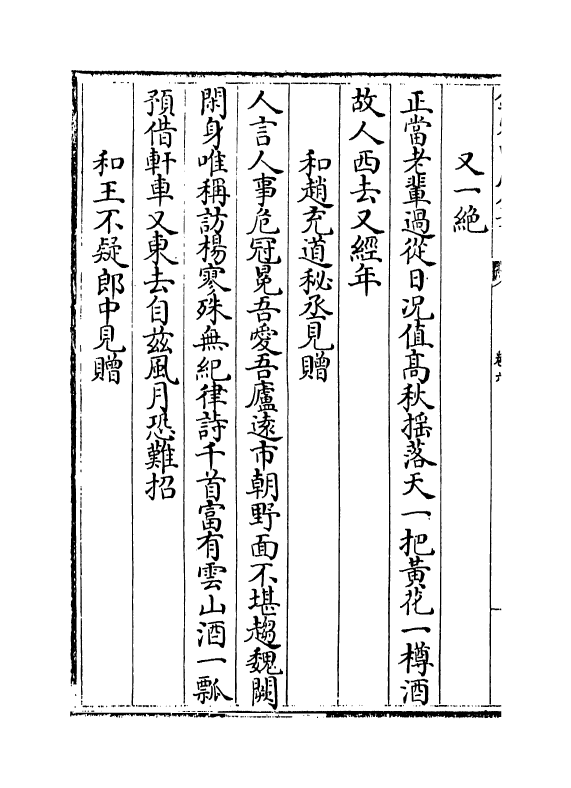 又一絶
正當老輩過從日况值髙秋揺落天一把黄花一樽酒
故人西去又經年
和趙充道秘丞見贈
人言人事危冠冕吾愛吾廬逺市朝野面不堪趨魏闕
閑身唯稱訪楊寥殊無紀律詩千首富有雲山酒一瓢
預借軒車又東去自兹風月恐難招
和王不疑郎中見贈
卷六